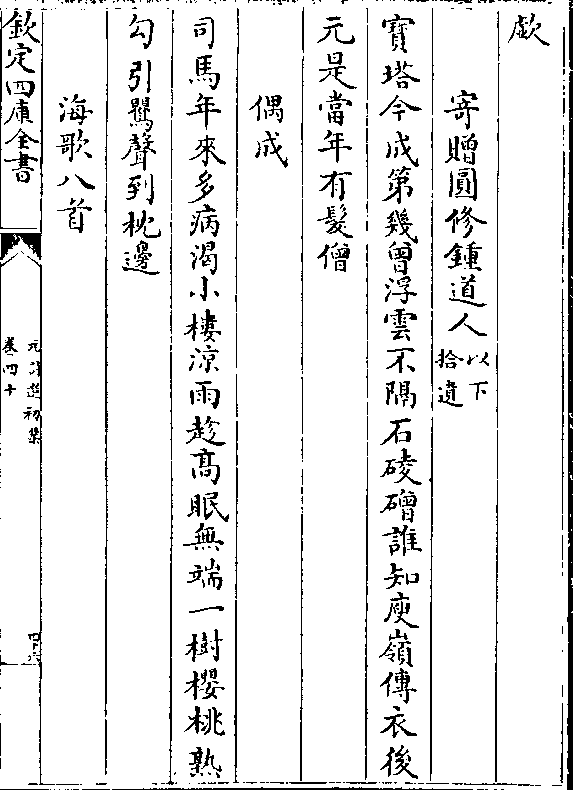 歔
寄贈圓修鍾道人以下拾遺
寶塔今成第幾曾浮雲不隔石碐磳誰知庾嶺傳衣後
元是當年有髮僧
偶成
司馬年來多病渴小樓涼雨趁高眠無端一樹櫻桃熟
勾引鸎聲到枕邊
海歌八首
欽定四庫全書
元詩選初集
卷四十